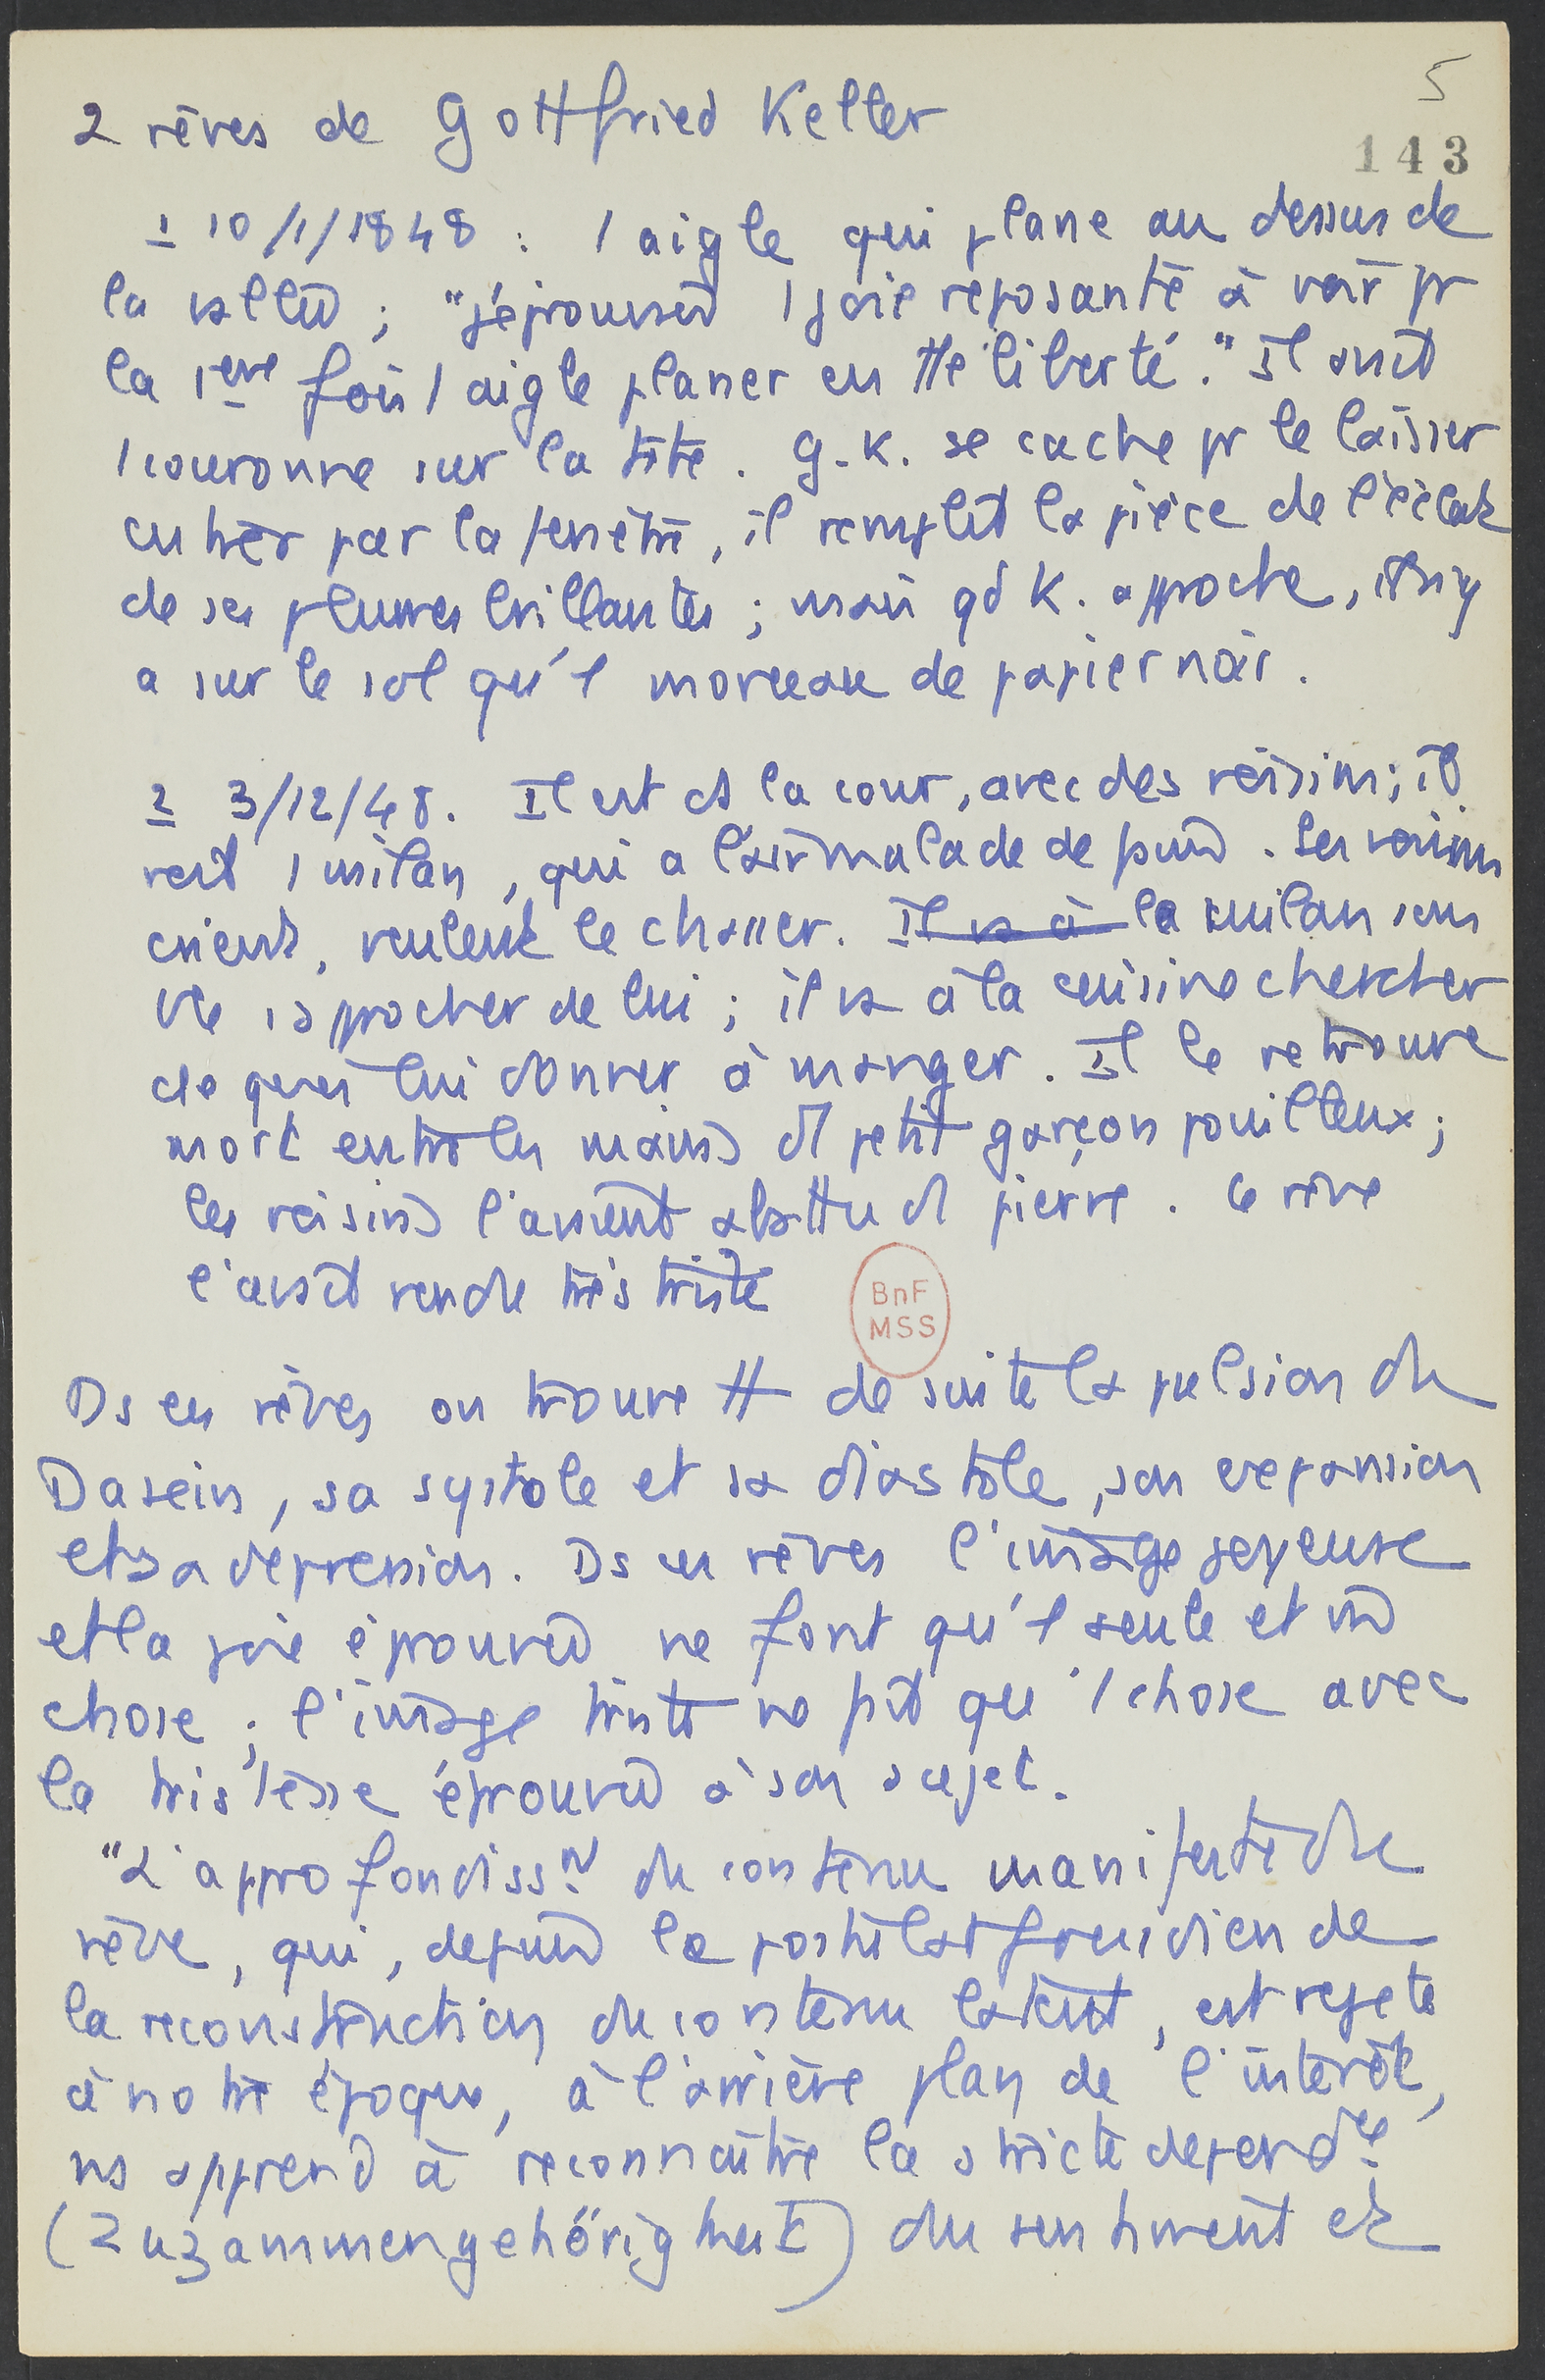 5
2 rêves de Gottfried Keller
143
1 10/1/1848 : 1 aigle qui plane au dessus de
la vallée ; "j'éprouvais 1 joie reposante à voir pr
la 1ere fois 1 aigle planer en tte liberté." Il avait
1 couronne sur la tête. G.K. se cache pr le laisser
entrer par la fenêtre, il remplit la pièce de l'éclat
de ses plumes brillantes ; mais qd K. approche, il n'y
a sur le sol qu'1 morceau de papier noir.
2 3/12/48. Il est ds la cour, avec des voisins ; il
voit 1 milan, qui a l'air malade de froid. Les voisins
crient, veulent le chasser. Il va à le milan
approcher de lui ; il va à la cuisine chercher
de quoi lui donner à manger. Il le retrouve
mort entre les mains d'1 petit garçon pouilleux ;
les voisins l'avaient abattu d'1 pierre. Ce rêve
l'avait rendu très triste
BnF
MSS
Ds ces rêves on trouve tt de suite la pulsion du
Dasein, sa systole et sa diastole, son expansion
et sa dépression. Ds ces rêves l'image joyeuse
et la joie éprouvée ne font qu'1 seule et mê
chose ; l'image triste ne fait qu'1 chose avec
la tristesse éprouvée à son sujet.
"L'approfondisst du contenu manifeste du
rêve, qui, depuis le postulat freudien de
la reconstruction du contenu latent, est rejeté
à notre époque, à l'arrière plan de l'intérêt,
ns apprend à reconnaître la stricte dépendce
(Zuzammengehörigkeit) du sentiment et